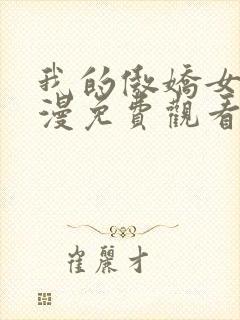 我的傲嬌女
漫免費觀看
崔麗才